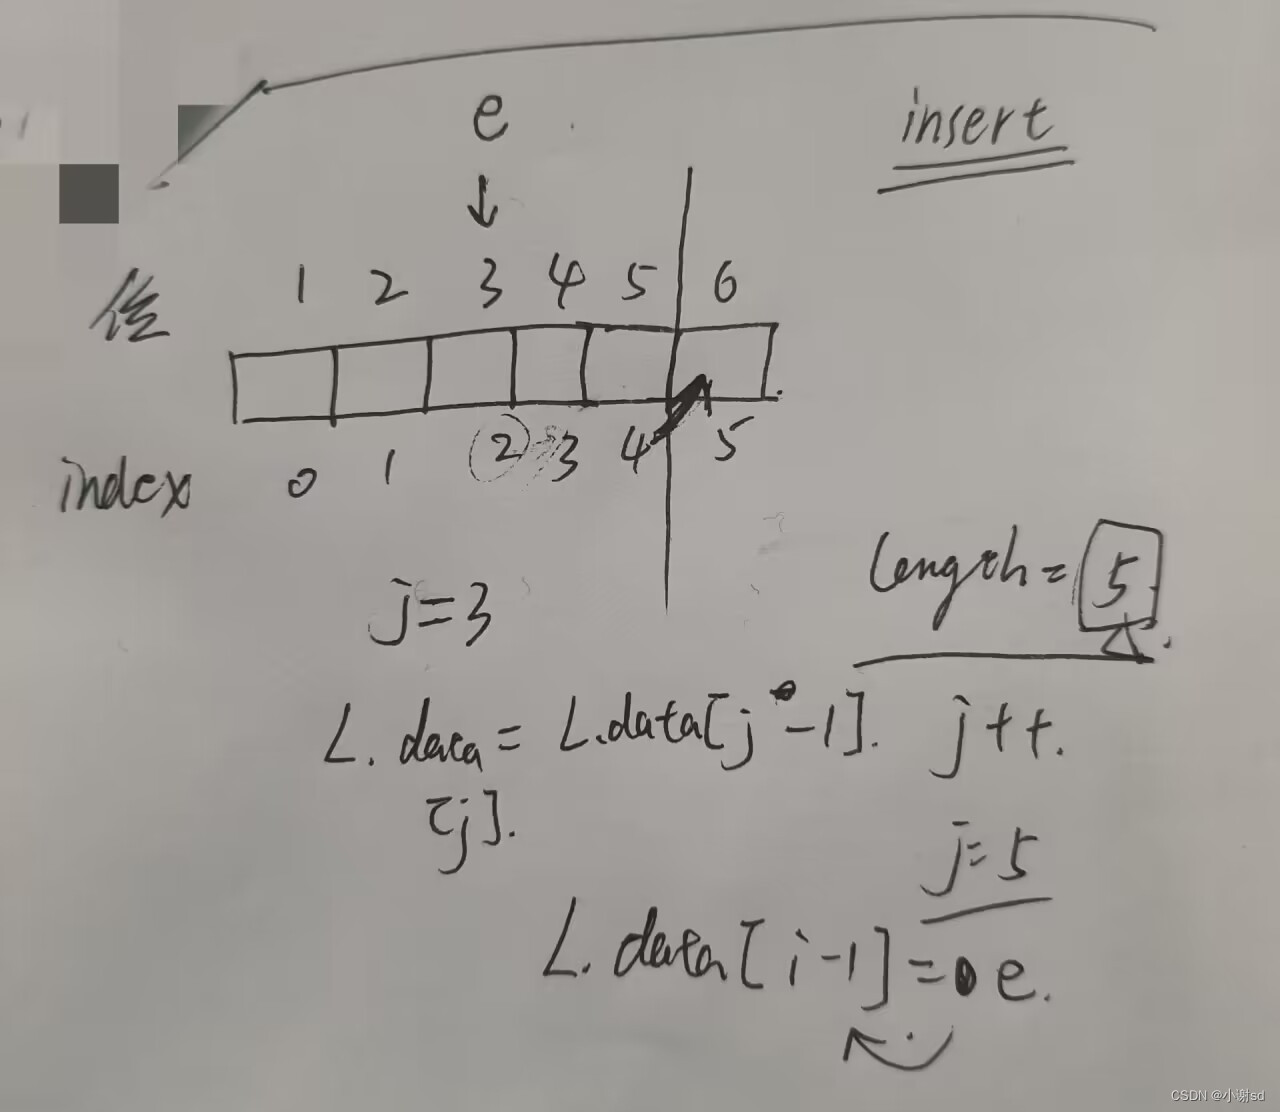 e
insert
1 2 3 4 5 6
index
0 1 2 3 4 5
length = 5
j=3
L.data = L.data[j-1]. j++.
[j].
j=5
L.data[i-1]= e.
CSDN @小谢sd